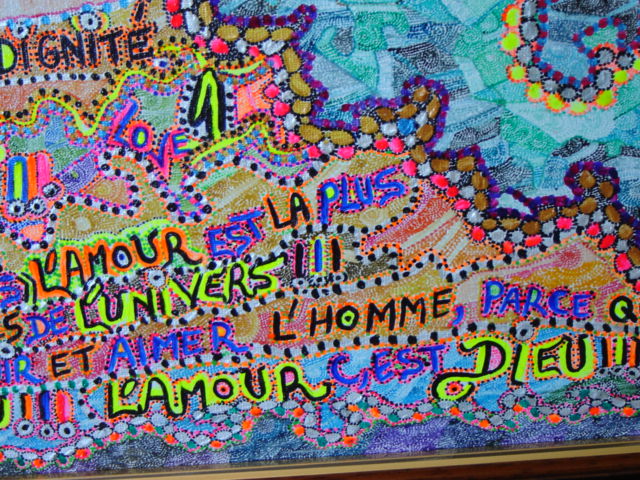 DIGNITÉ
LOVE 1
L'AMOUR EST LA PLUS
S DE L'UNIVERS!!!
IR ET AIMER L'HOMME, PARCE Q
!!! L'AMOUR C'EST DIEU!!!